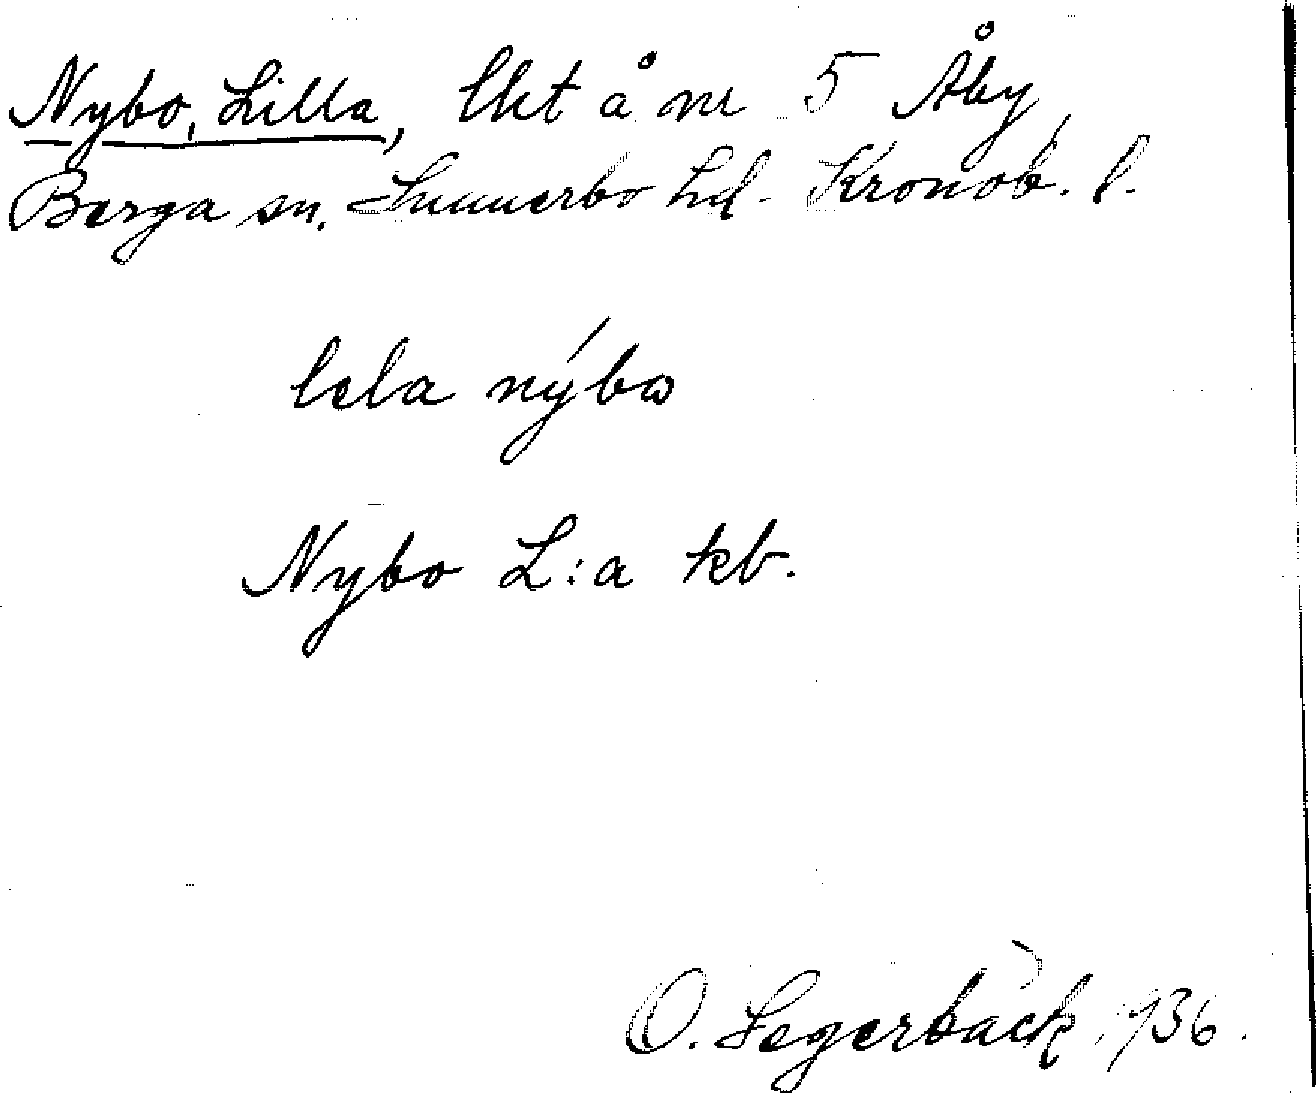 Nybo, Lilla, lht å nr 5 Åby,
Berga sn. Sunnerbo hd. Kronob. l.
lela nýbω
Nybo L:a kb.
O. Segerbäck, 1936.